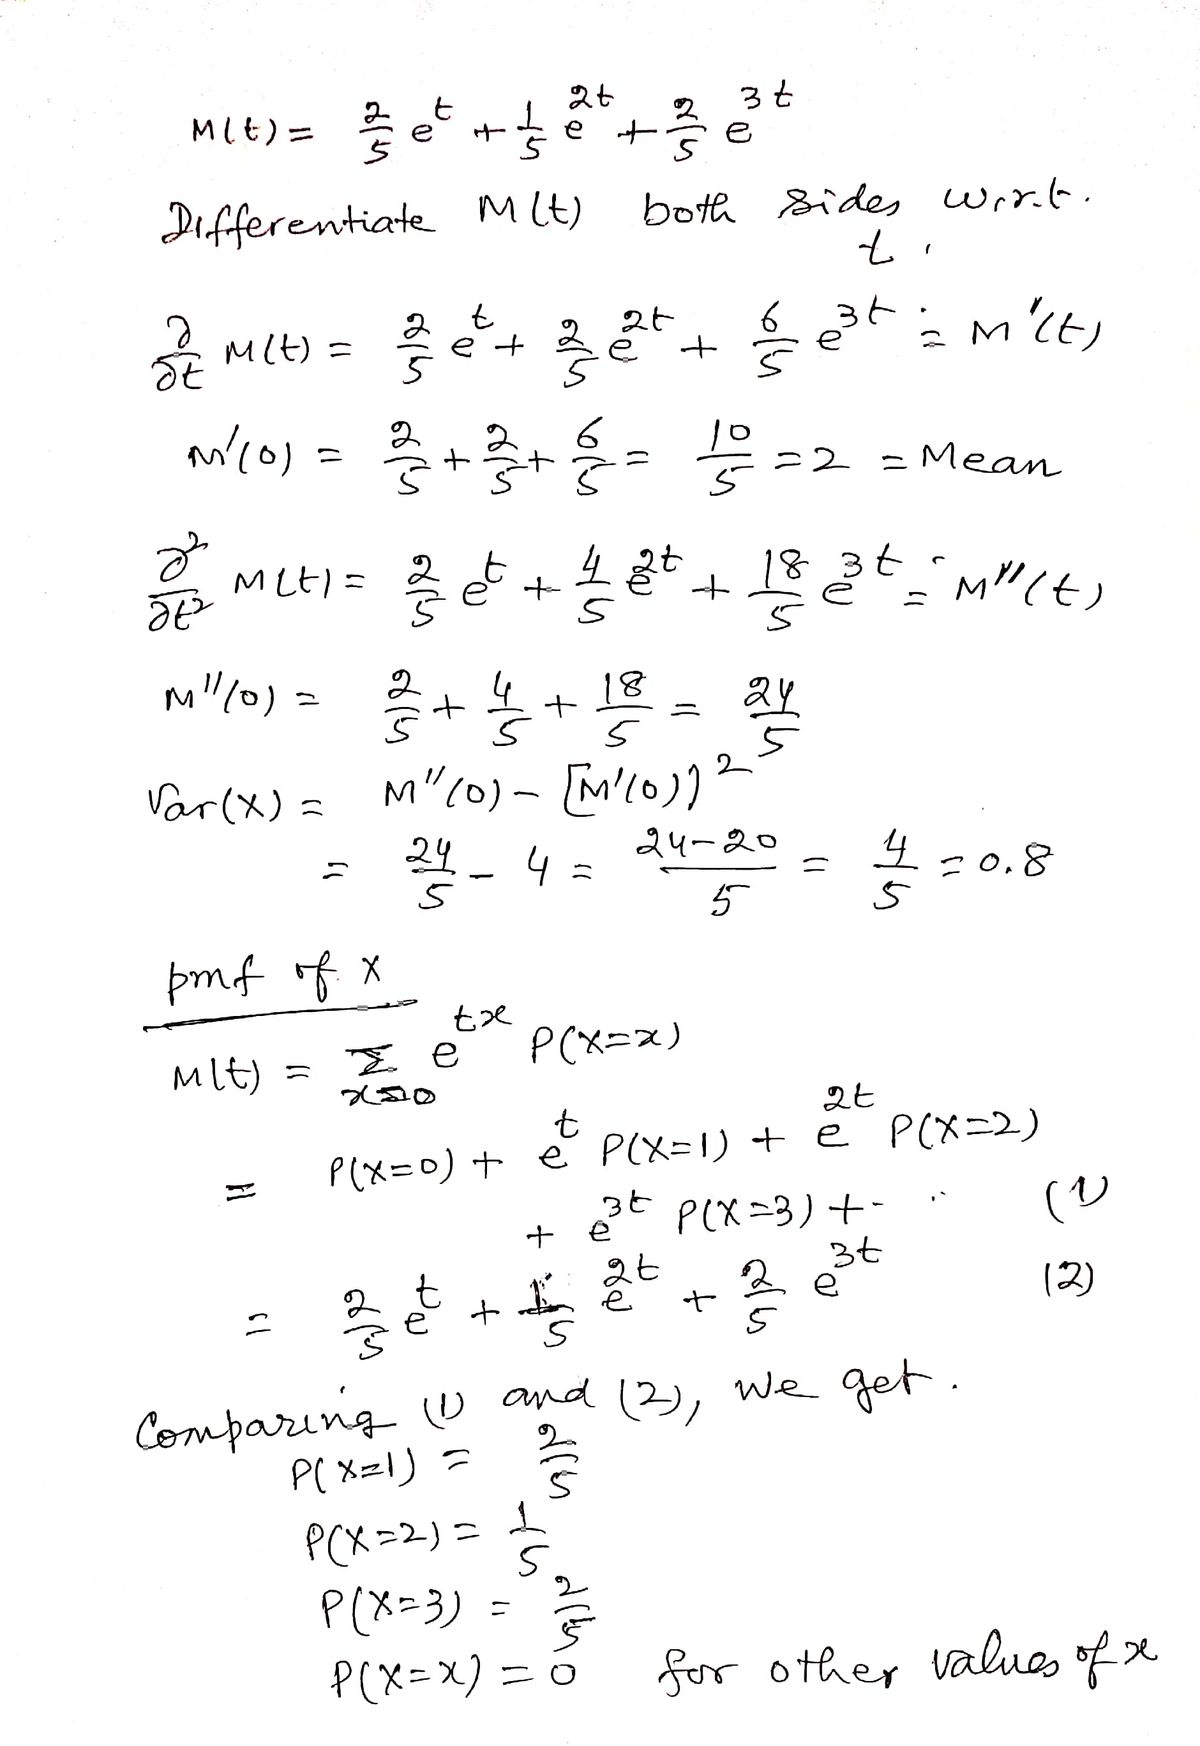 M(t) = 2/5 e^t + 1/5 e^2t + 2/5 e^3t
Differentiate M(t) both sides w.r.t.
t.
∂/∂t M(t) = 2/5 e^t + 2/5 e^2t + 6/5 e^3t = M'(t)
M'(0) = 2/5 + 2/5 + 6/5 = 10/5 = 2 = Mean
∂²/∂t² M(t) = 2/5 e^t + 4/5 e^2t + 18/5 e^3t = M''(t)
M''(0) = 2/5 + 4/5 + 18/5 = 24/5
Var(X) = M''(0) - [M'(0)]²
= 24/5 - 4 = (24-20)/5 = 4/5 = 0.8
pmf of X
M(t) = Σ_{x=0} e^tx P(X=x)
= P(X=0) + e^t P(X=1) + e^2t P(X=2)
+ e^3t P(X=3) + .. .. (1)
= 2/5 e^t + 1/5 e^2t + 2/5 e^3t (2)
Comparing (1) and (2), we get.
P(X=1) = 2/5
P(X=2) = 1/5
P(X=3) = 2/5
P(X=x) = 0 for other values of x